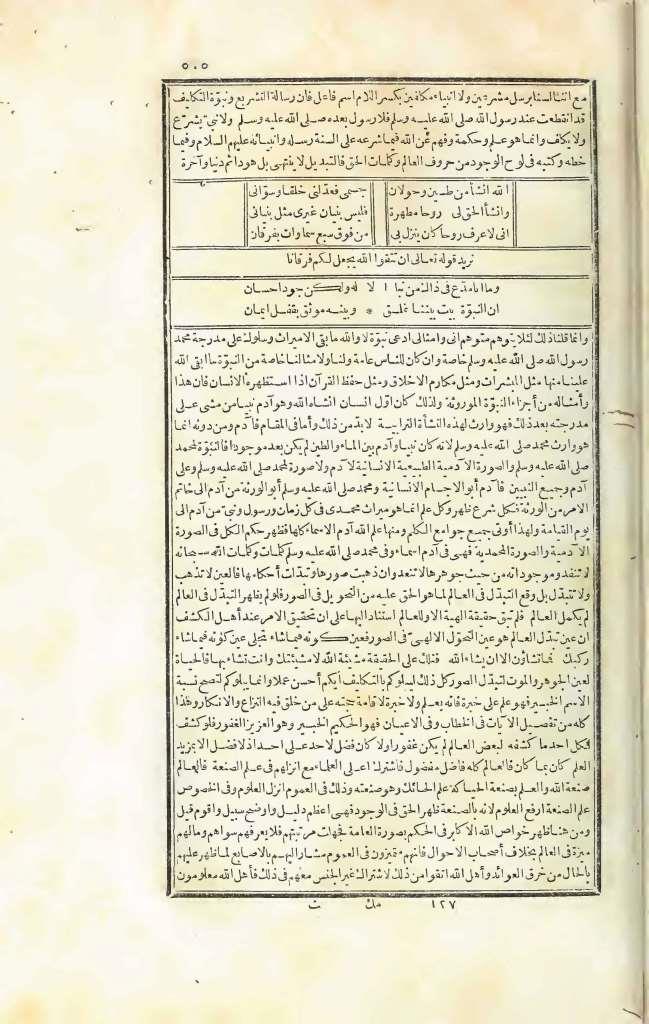 ٥٠٥
مع اننا لسنا برسل مشرعين ولا انبياء مكلفين بكسر اللام اسم فاعل فان رسالة التشريع ونبوة التكليف
قد انقطعت عند رسول الله صلى الله عليه وسلم فلا رسول بعده صلى الله عليه وسلم ولا نبي يشرع
ولا يكلف وانما هو علم وحكمة وفهم عن الله فيما شرعه على السنة رسله وانبيائه عليهم السلام وفيما
خطه وكتبه في لوح الوجود من حروف العالم وكلمات الحق فالتبديل لا ينتهى بل هو دائم دنيا وآخرة
الله انشأ من طين وحولان جسمي فعدلني خلقا وسوّاني
وانشأ الحق لى روحا مطهرة فليس بنيان غيرى مثل بنياني
انى لاعرف روحا كان ينزل بي من فوق سبع سماوات بفرقان
نريد قوله تعالى ان تتقوا الله يجعل لكم فرقانا
وما انا مدّع في ذاك من نبا ا لا له ولكن جود احسان
ان النبوّة بيت بيننا غلق * وبينه موثق بقفل ايمان
وانما قلنا ذلك لئلا يتوهم متوهم انى وامثالى ادعى نبوّة لا والله ما بقى الا ميراث وسلوك على مدرجة محمد
رسول الله صلى الله عليه وسلم خاصة وان كان للناس عامة ولنا ولامثالنا خاصة من النبوّة ما ابقى الله
علينا منها مثل المبشرات ومثل مكارم الاخلاق ومثل حفظ القرآن اذا استظهره الانسان فان هذا
وأمثاله من أجزاء النبوّة الموروثة ولذلك كان اوّل انسان انشأه الله وهو آدم نبيا من مشى على
مدرجته بعد ذلك فهو وارث لهذه النشأة الترابية لا بدّ من ذلك وأما في المقام فآدم ومن دونه انما
هو وارث محمد صلى الله عليه وسلم لانه كان نبيا وآدم بين الماء والطين لم يكن بعد موجودا فالنبوّة لمحمد
صلى الله عليه وسلم والصورة الآدمية الطبيعية الانسانية لآدم ولا صورة لمحمد صلى الله عليه وسلم وعلى
آدم وجميع النبيين فآدم أبو الاجسام الانسانية ومحمد صلى الله عليه وسلم أبو الورثة من آدم الى خاتم
الامر من الورثة فكل شرع ظهر وكل علم انما هو ميراث محمدى في كل زمان ورسول ونبي من آدم الى
يوم القيامة ولهذا أوتى جميع جوامع الكلم ومنها علم الله آدم الاسماء كلها فظهر حكم الكل في الصورة
الآدمية والصورة المحمدية فهى في آدم اسماء وفي محمد صلى الله عليه وسلم كلمات وكلمات الله سبحانه
لا تنفد وموجوداته من حيث جوهرها لا تنعد وان ذهبت صورها وتبدّلت أحكامها فالعين لا تذهب
ولا تتبدّل بل وقع التبدّل في العالم لما هو الحق عليه من التحويل في الصور فلو لم يظهر التبدّل في العالم
لم يكمل العالم فلم تبق حقيقة الهية الا وللعالم استناد اليها على ان تحقيق الامر عند أهل الكشف
ان عين تبدّل العالم هو عين التحوّل الالهى في الصور فعين كونه فيما شاء تجلى عين كونه فيما شاء
ركبك فما تشاؤن الا ان يشاء الله فتلك على الحقيقة مشيئة الله لا مشيئتك وانت تشاء بها فالحياة
لعين الجوهر والموت لتبدّل الصور كل ذلك ليبلوكم بالتكليف أيكم أحسن عملا وانما يبلوكم لتصح نسبة
الاسم الخبير فهو علم على خبرة فانه يعلم ولا خبرة لاقامة حجته على من خلق فيه النزاع والانكار وهذا
كله من تفصيل الآيات في الخطاب وفي الاعيان فهو الحكيم الخبير وهو العزيز الغفور فلو كشف
فكل احد ما كشفه لبعض العالم لم يكن غفورا ولا كان فضل لاحد على احد اذ لا فضل الا بمزيد
العلم كان بما كان فالعالم كله فاضل مفضول فاشترك اعلى العلماء مع انزلهم في علم الصنعة فالعالم
صنعة الله والعلم بصنعة الحياكة علم الحائك وهو صنعته وذلك في العموم انزل العلوم وفي الخصوص
علم الصنعة ارفع العلوم لانه بالصنعة ظهر الحق في الوجود فهى اعظم دليل واوضح سبيل واقوم قيل
ومن هنا ظهر خواص الله الاكابر في الحكم بصورة العامة فجهلت مرتبتهم فلا يعرفهم سواهم ومالهم
ميزة في العالم بخلاف أصحاب الاحوال فانهم متميزون في العموم مشار اليهم بالاصابع لما ظهر عليهم
بالحال من خرق العوائد وأهل الله انفوا من ذلك لاشتراك غير الجنس معهم في ذلك فأهل الله معلومون
١٢٧ مك ت